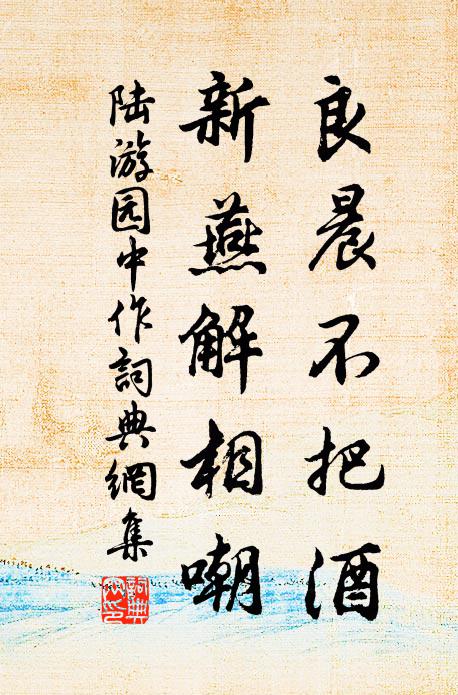 良晨不把酒
新燕解相嘲
陆游园中作詞典網集